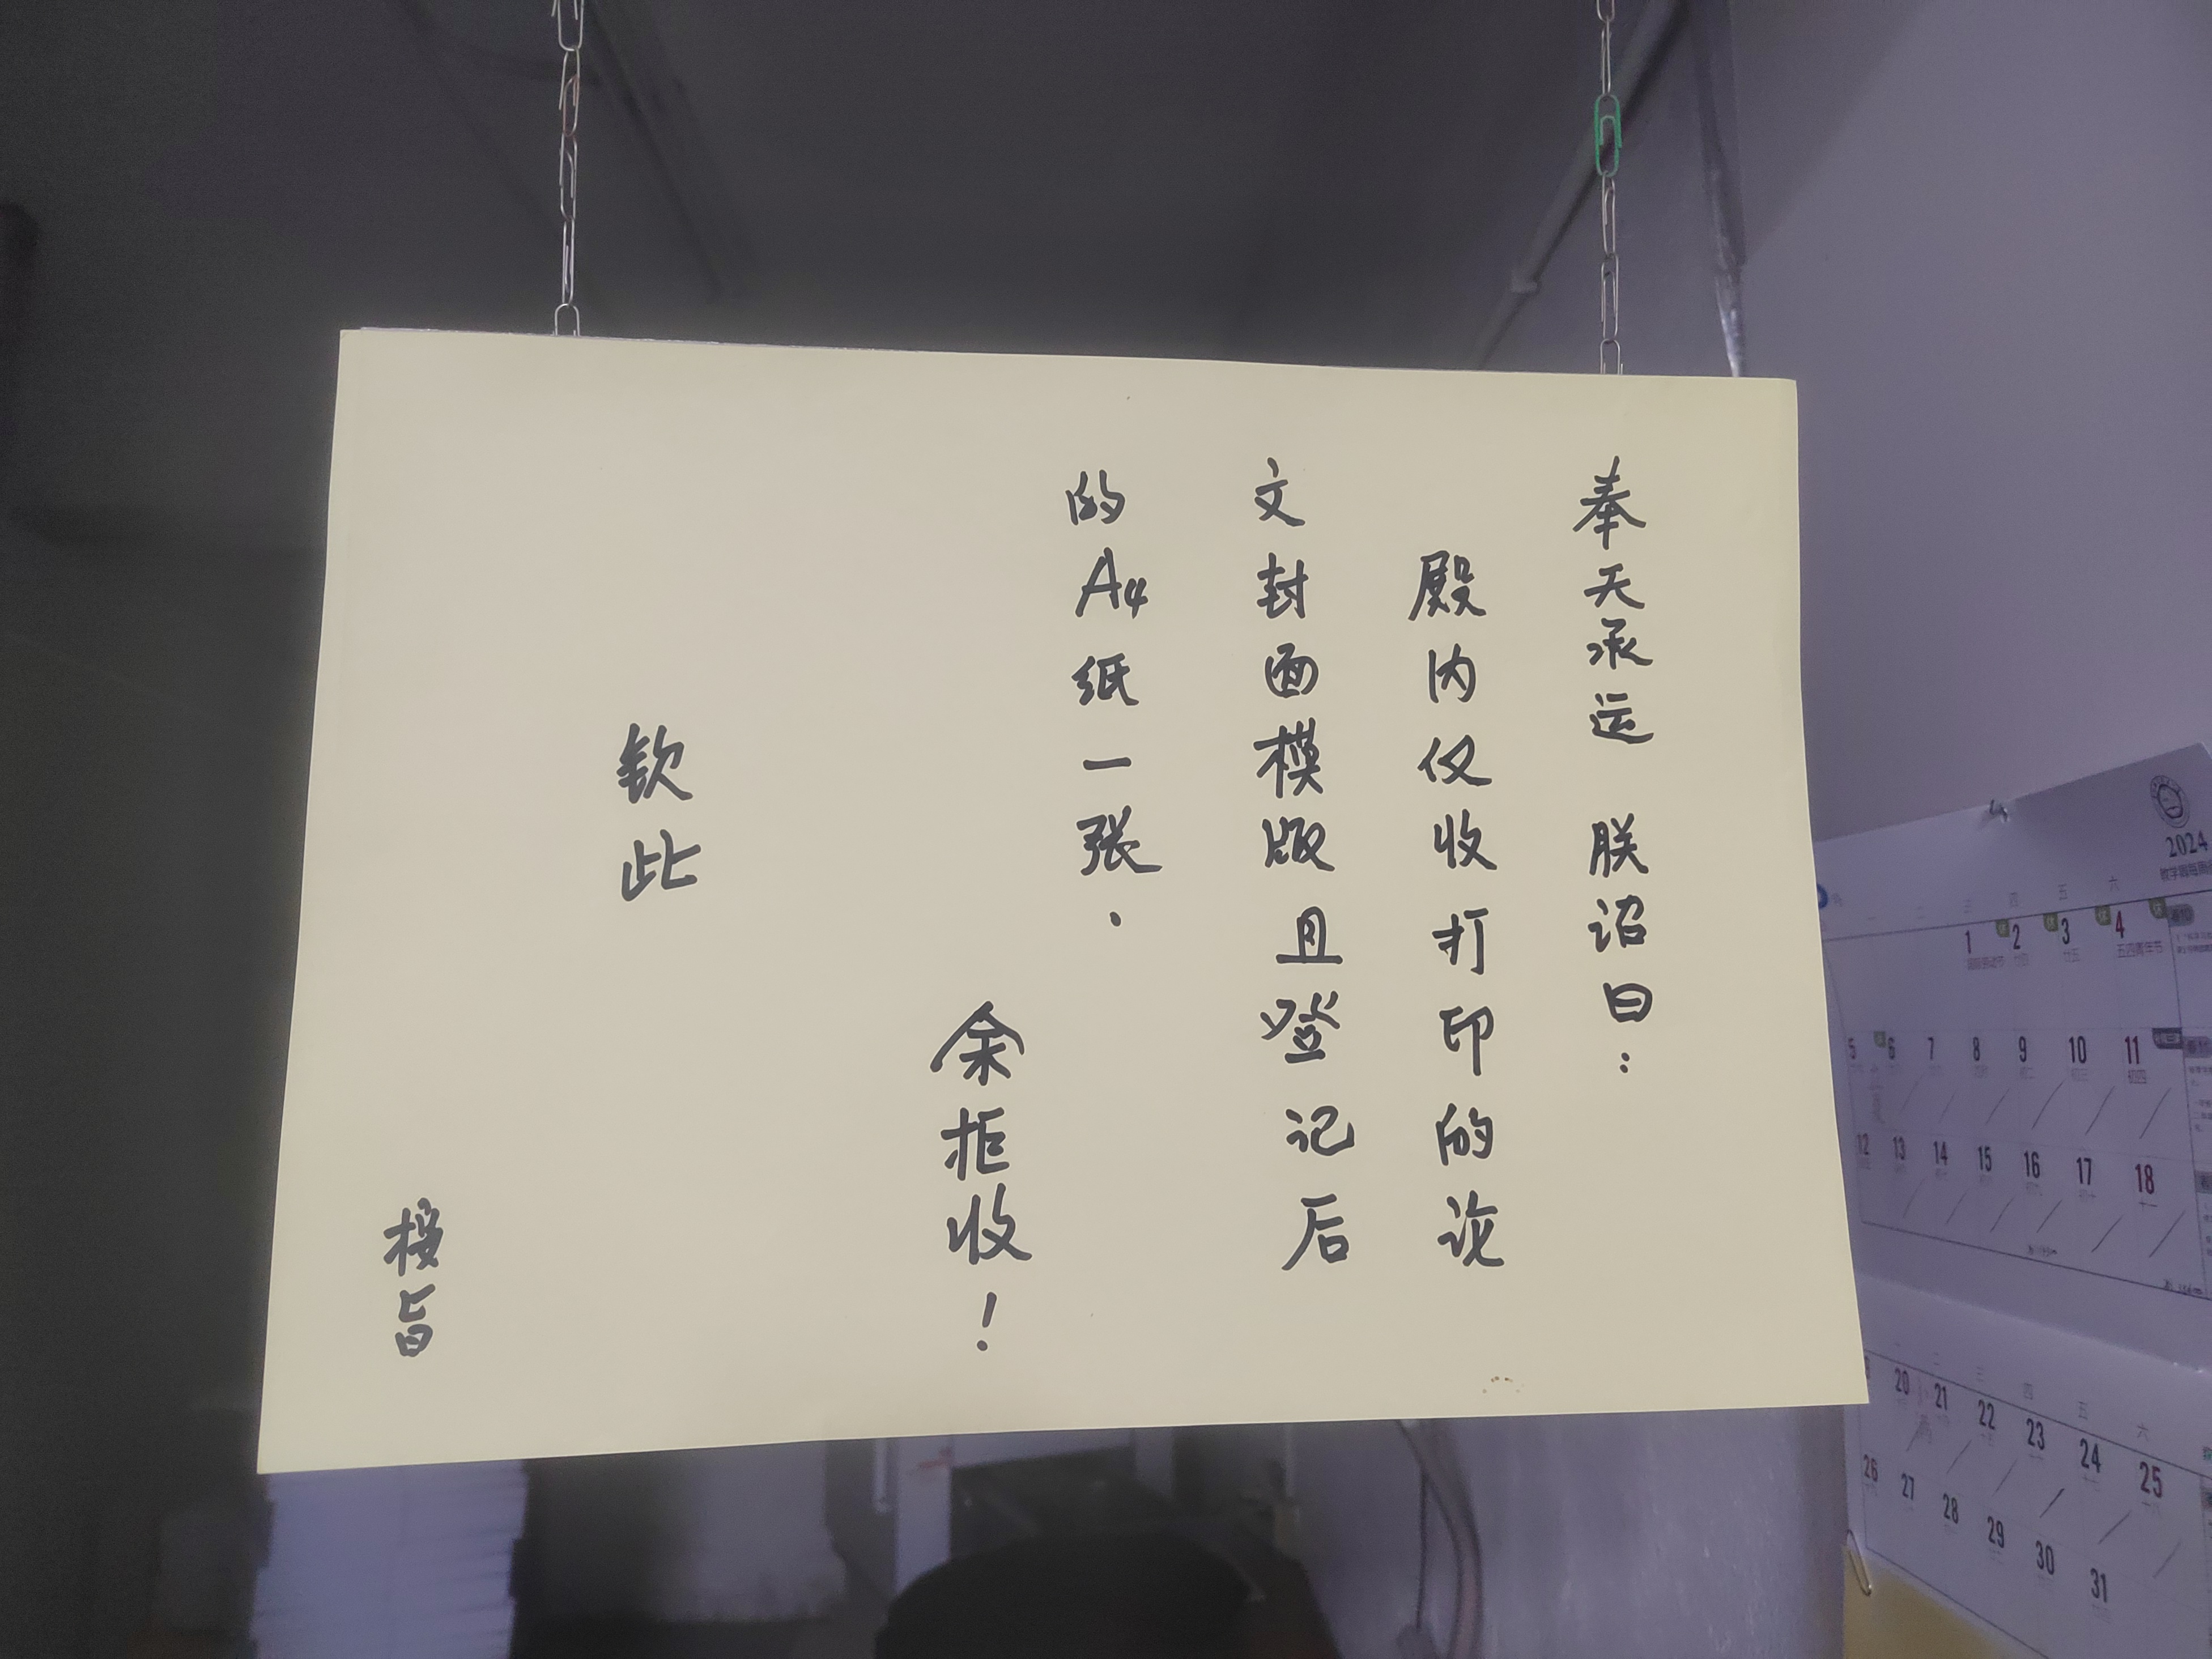 奉天承运 朕诏曰：
殿内仅收打印的论
文封面模版且登记后
的A4纸一张.
余拒收！
钦此
接旨
2024
四 五 六
1 2 3 4
五四青年节
5 6 7 8 9 10 11
12 13 14 15 16 17 18
二 三 四 五 六
20 21 22 23 24 25
26 27 28 29 30 31